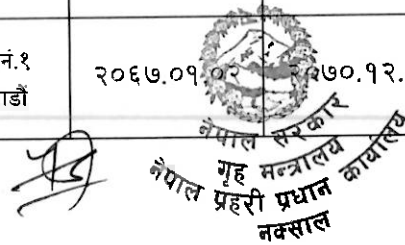 नं.१
२०६७.०१.०२ २०७०.१२.
ाडौं
नेपाल सरकार
गृह मन्त्रालय
नेपाल प्रहरी प्रधान कार्यालय
नक्साल